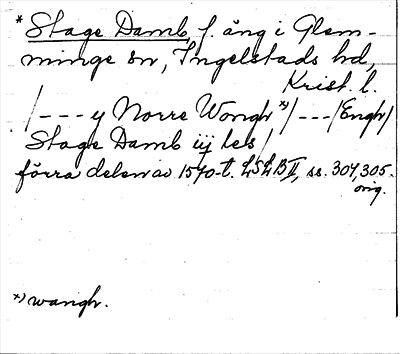 * Stage Damb, f. äng i Glem-
minge sn, Ingelstads hd,
Krist. l.
/--- y Norre Wongh *)/---/Engh/
Stage Damb iij les/
förra delen av 1570-t. LSLB II, ss. 304, 305.
orig.
*) wangh.